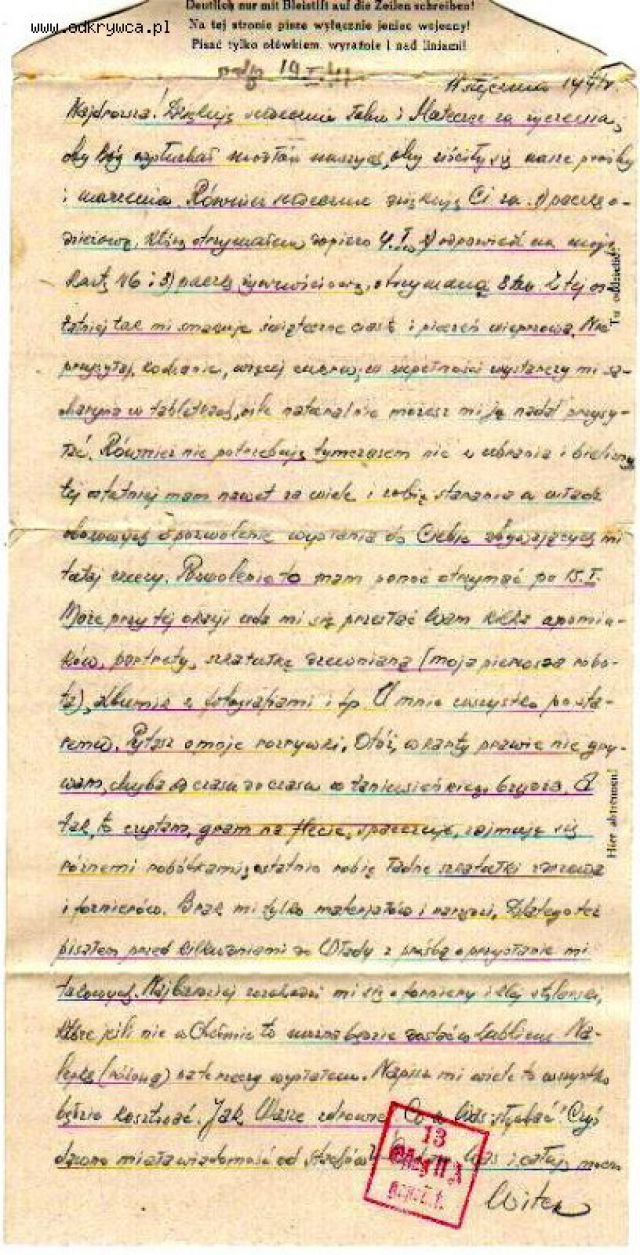 www.odkrywca.pl
Deutlich nur mit Bleistift auf die Zeilen schreiben!
Na tej stronie pisze wyłącznie jeniec wojenny!
Pisać tylko ołówkiem, wyraźnie i nad liniami!
11 stycznia 1941 r.
Najdroższa! Dziękuję serdecznie Tobie i Mateczce za życzenia,
oby Bóg wysłuchał modłów naszych, oby ziściły się nasze prośby
i marzenia. Również serdecznie dziękuję Ci za 1) paczkę o-
dzieżową, którą otrzymałem dopiero 4.I., 2) odpowiedź na moją
kartę 46 i 3) paczkę żywnościową, otrzymaną 8 bm. Z tej os-
tatniej tak mi smakuje świąteczne ciasto i pieczeń wieprzowa. Nie
przysyłaj, kochanie, więcej cukru, w zupełności wystarczy mi sa-
charyna w tabletkach, ale naturalnie możesz mi ją nadal przysy-
łać. Również nie potrzebuję tymczasem nic z ubrania i bielizny,
tej ostatniej mam nawet za wiele i robię starania u władz
obozowych o pozwolenie wysłania do Ciebie zbywających mi
tutaj rzeczy. Pozwolenie to mam ponoć otrzymać po 15.I.
Może przy tej okazji uda mi się przesłać Wam kilka upomin-
ków, portrety, szkatułkę drewnianą (moja pierwsza robo-
ta), albumik z fotografiami i t.p. U mnie wszystko po sta-
remu. Pytasz o moje rozrywki. Otóż, w karty prawie nie gry-
wam, chyba od czasu do czasu w brydża. A
tak, to czytam, gram na flecie, spaceruję, zajmuję się
różnemi robótkami, ostatnio robię ładne szkatułki z drzewa
i fornierów. Brak mi tylko materjałów i narzędzi. Dlatego też
pisałem przed kilku dniami do Włady z prośbą o przysłanie mi
takowych. Najbardziej rozchodzi mi się o forniery i klej stolarski,
które jeśli nie w Chełmie to można będzie dostać w Lublinie. Na-
lepkę (różową) na te rzeczy wysłałem. Napisz mi wiele to wszystko
będzie kosztować. Jak Wasze zdrowie? Co u Was słychać? Czyś
dawno miała wiadomość od Stachów? Was i całuję mocno
Witek
Tu oddzielić!
Hier abtrennen!
13
geprüft